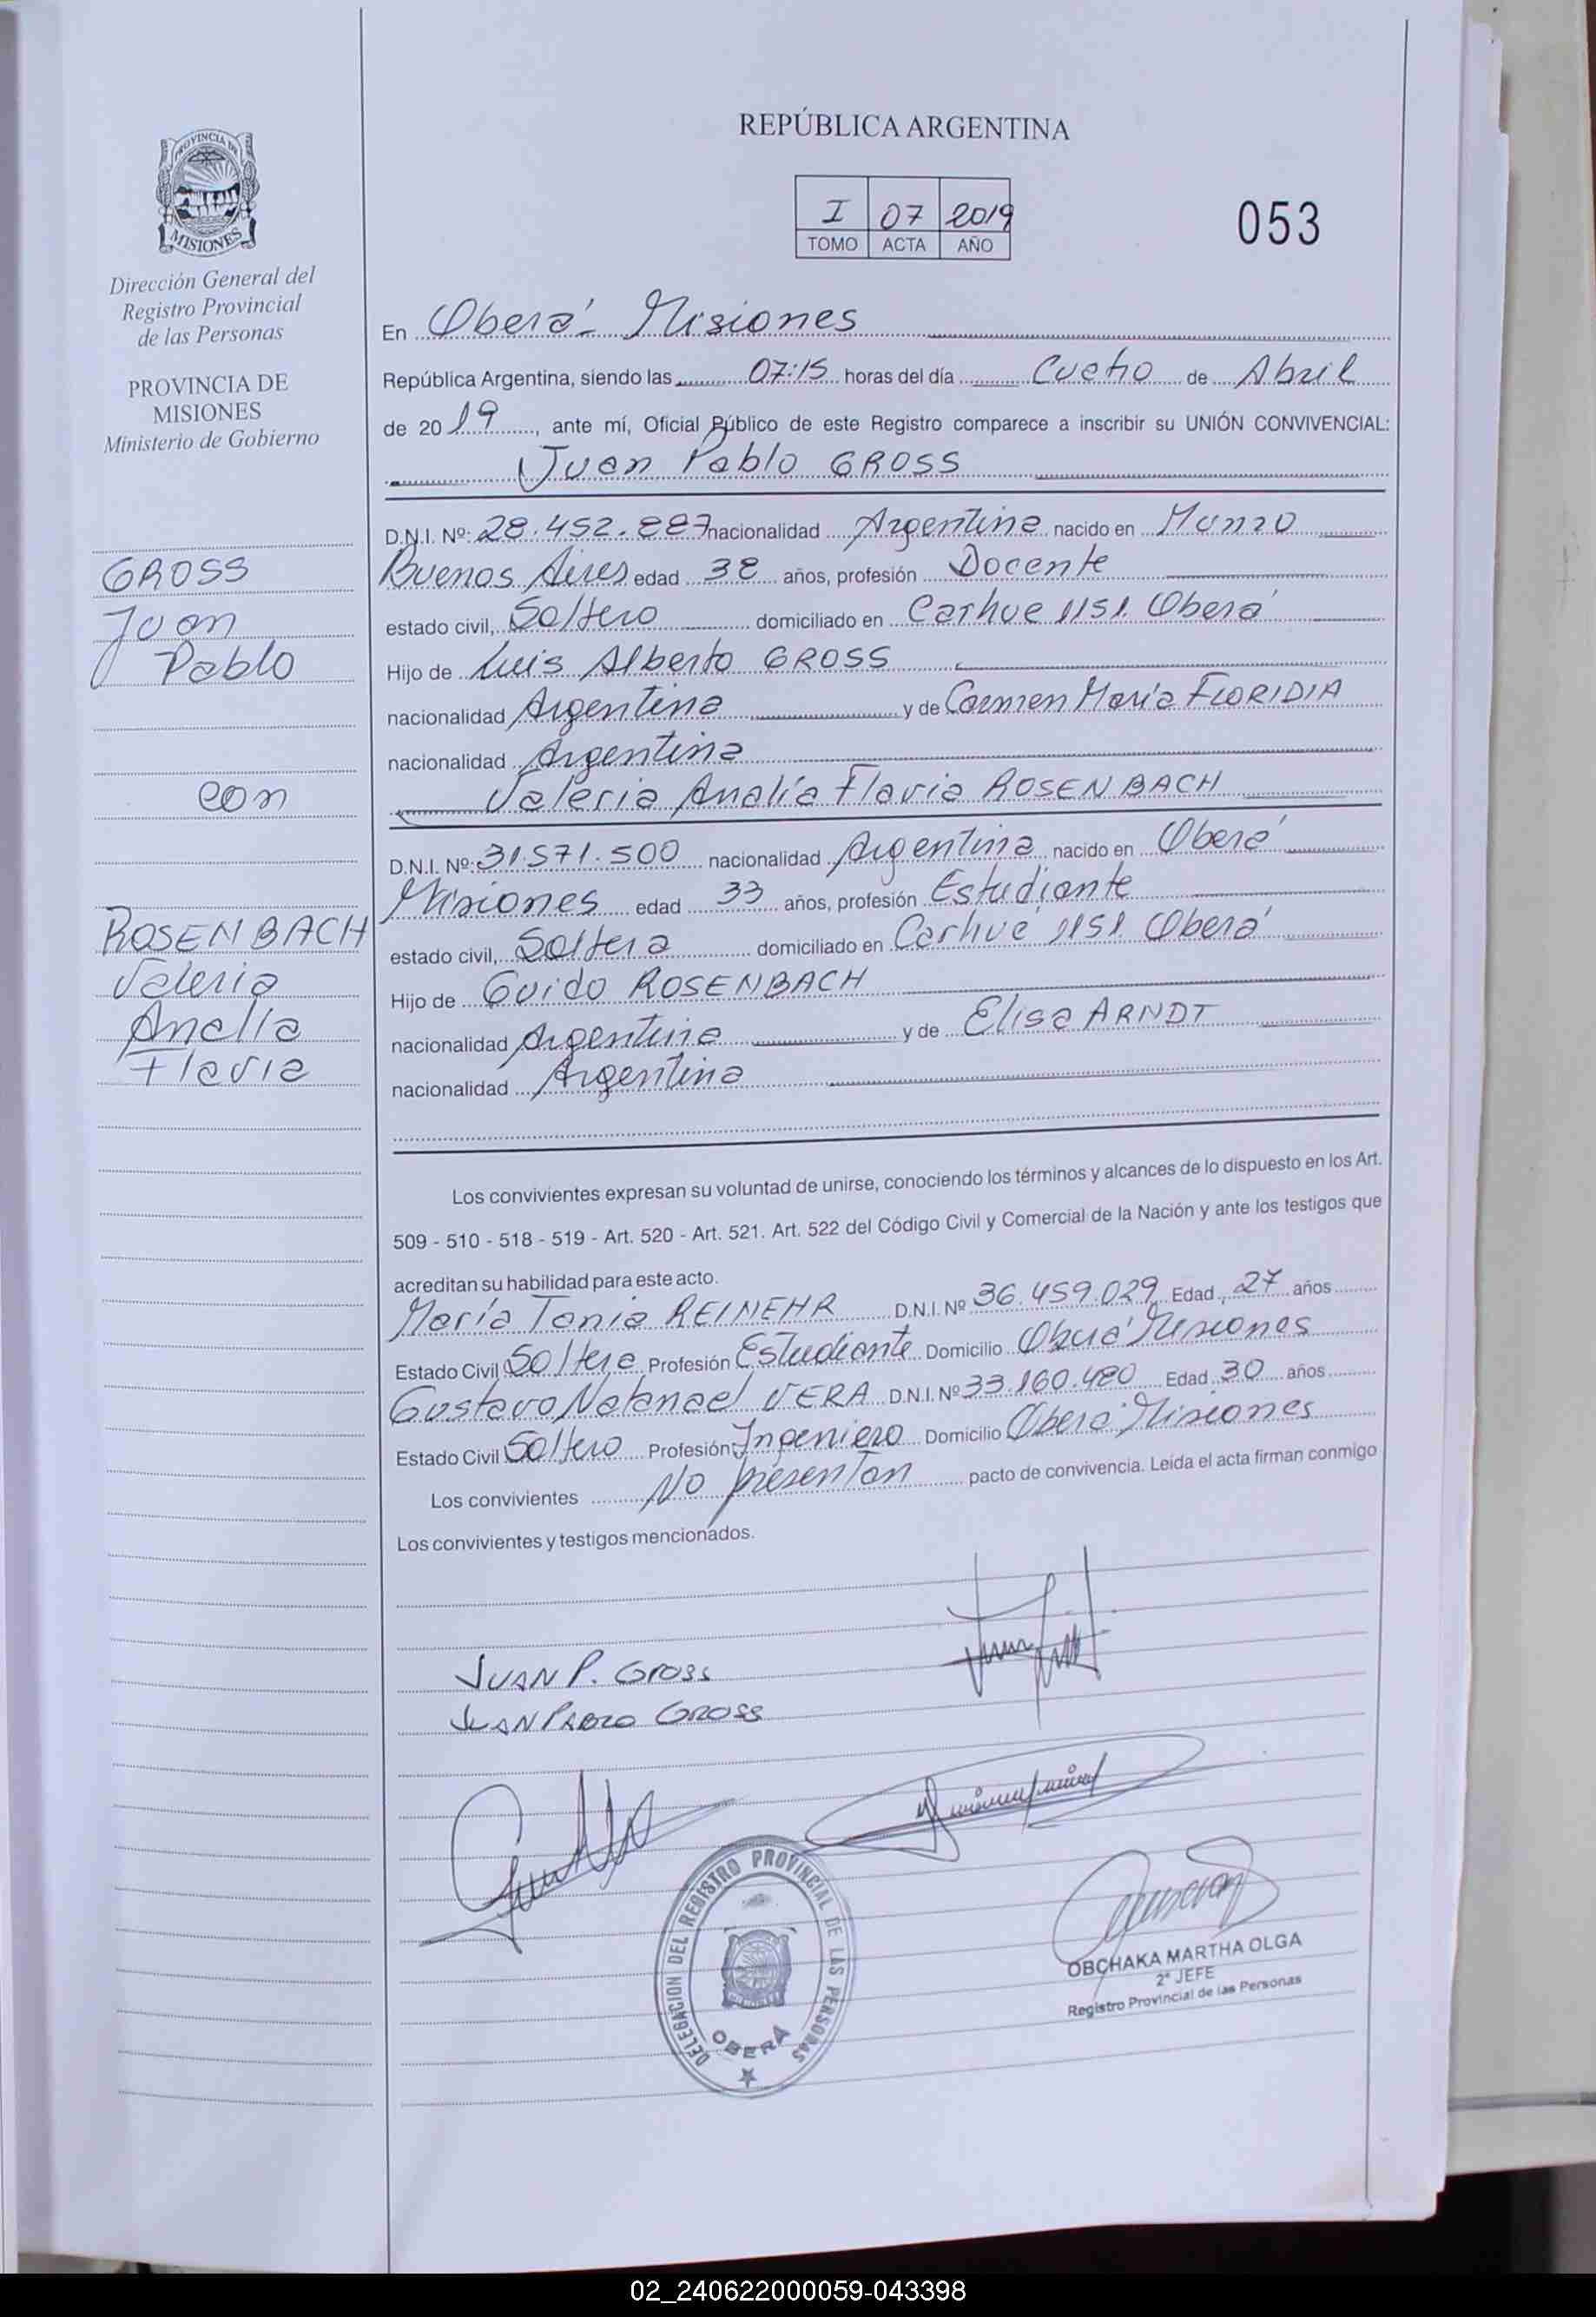 PROVINCIA DE
MISIONES
Dirección General del
Registro Provincial
de las Personas
PROVINCIA DE
MISIONES
Ministerio de Gobierno
GROSS
Juan
Pablo
con
ROSENBACH
Valeria
Analía
Flavia
REPÚBLICA ARGENTINA
I 07 2019
TOMO ACTA AÑO
053
En Oberá - Misiones
República Argentina, siendo las 07:15 horas del día Cuatro de Abril
de 2019, ante mí, Oficial Público de este Registro comparece a inscribir su UNIÓN CONVIVENCIAL:
Juan Pablo GROSS
D.N.I. Nº: 28.452.887 nacionalidad Argentina nacido en Munro
Buenos Aires edad 38 años, profesión Docente
estado civil, Soltero domiciliado en Carhue 1151. Oberá
Hijo de Luis Alberto GROSS
nacionalidad Argentina y de Carmen María FLORIDIA
nacionalidad Argentina
Valeria Analía Flavia ROSENBACH
D.N.I. Nº: 31.571.500 nacionalidad Argentina nacido en Oberá
Misiones edad 33 años, profesión Estudiante
estado civil, Soltera domiciliado en Carhué 1151. Oberá
Hijo de Guido ROSENBACH
nacionalidad Argentina y de Elisa ARNDT
nacionalidad Argentina
Los convivientes expresan su voluntad de unirse, conociendo los términos y alcances de lo dispuesto en los Art.
509 - 510 - 518 - 519 - Art. 520 - Art. 521. Art. 522 del Código Civil y Comercial de la Nación y ante los testigos que
acreditan su habilidad para este acto.
María Tania REINEHR D.N.I. Nº 36.459.029 Edad 27 años
Estado Civil Soltera Profesión Estudiante Domicilio Oberá Misiones
Gustavo Natanael VERA D.N.I. Nº 33.160.480 Edad 30 años
Estado Civil Soltero Profesión Ingeniero Domicilio Oberá Misiones
Los convivientes No presentan pacto de convivencia. Leída el acta firman conmigo
Los convivientes y testigos mencionados.
JUAN P. GROSS
JUAN PABLO GROSS
DELEGACION DEL REGISTRO PROVINCIAL DE LAS PERSONAS
OBERÁ
OBCHAKA MARTHA OLGA
2° JEFE
Registro Provincial de las Personas
02_240622000059-043398